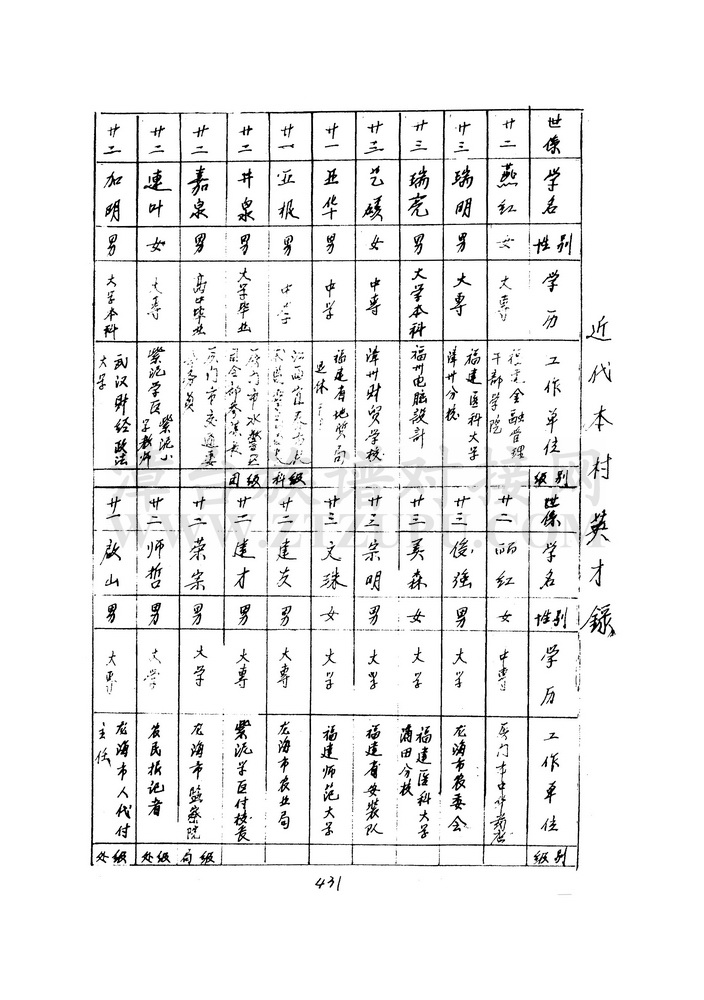 近代本村英才錄
世系 学名 性别 学历 工作单位 级别
廿二 燕红 女 大专 金融管理干部学院
廿三 瑞明 男 大专 福建医科大学漳州分校
廿三 瑞亮 男 大学本科 福州电脑設計
廿三 艺 女 中專 漳州财贸学校
廿一 亚华 男 中学 福建省地质局 退休
廿一 亚 男 中学 科级
廿二 井泉 男 大学毕业 厦门市水警区司令部参谋长 团级
廿二 嘉泉 男 高中毕业 厦门市交通委
廿二 連叶 女 大專 紫泥学区紫泥小学教师
廿二 加明 男 大学本科 武汉财经政法大学
世系 学名 性别 学历 工作单位 级别
廿二 丽红 女 中專 厦门市中
廿三 俊强 男 大学 龙海市农委会
廿三 美森 女 大学 福建医科大学莆田分校
廿三 宗明 男 大学 福建省安装队
廿三 文珠 女 大学 福建师范大学
廿二 建 男 大專 龙海市农业局
廿二 建才 男 大專 紫泥学区付校长
廿二 荣宗 男 大学 龙海市监察院 局级
廿二 师哲 男 大学 农民报记者 处级
廿一 啟山 男 大專 龙海市人代付主任 处级
431
漳台族谱对接网
WWW.ZTZUPU.COM